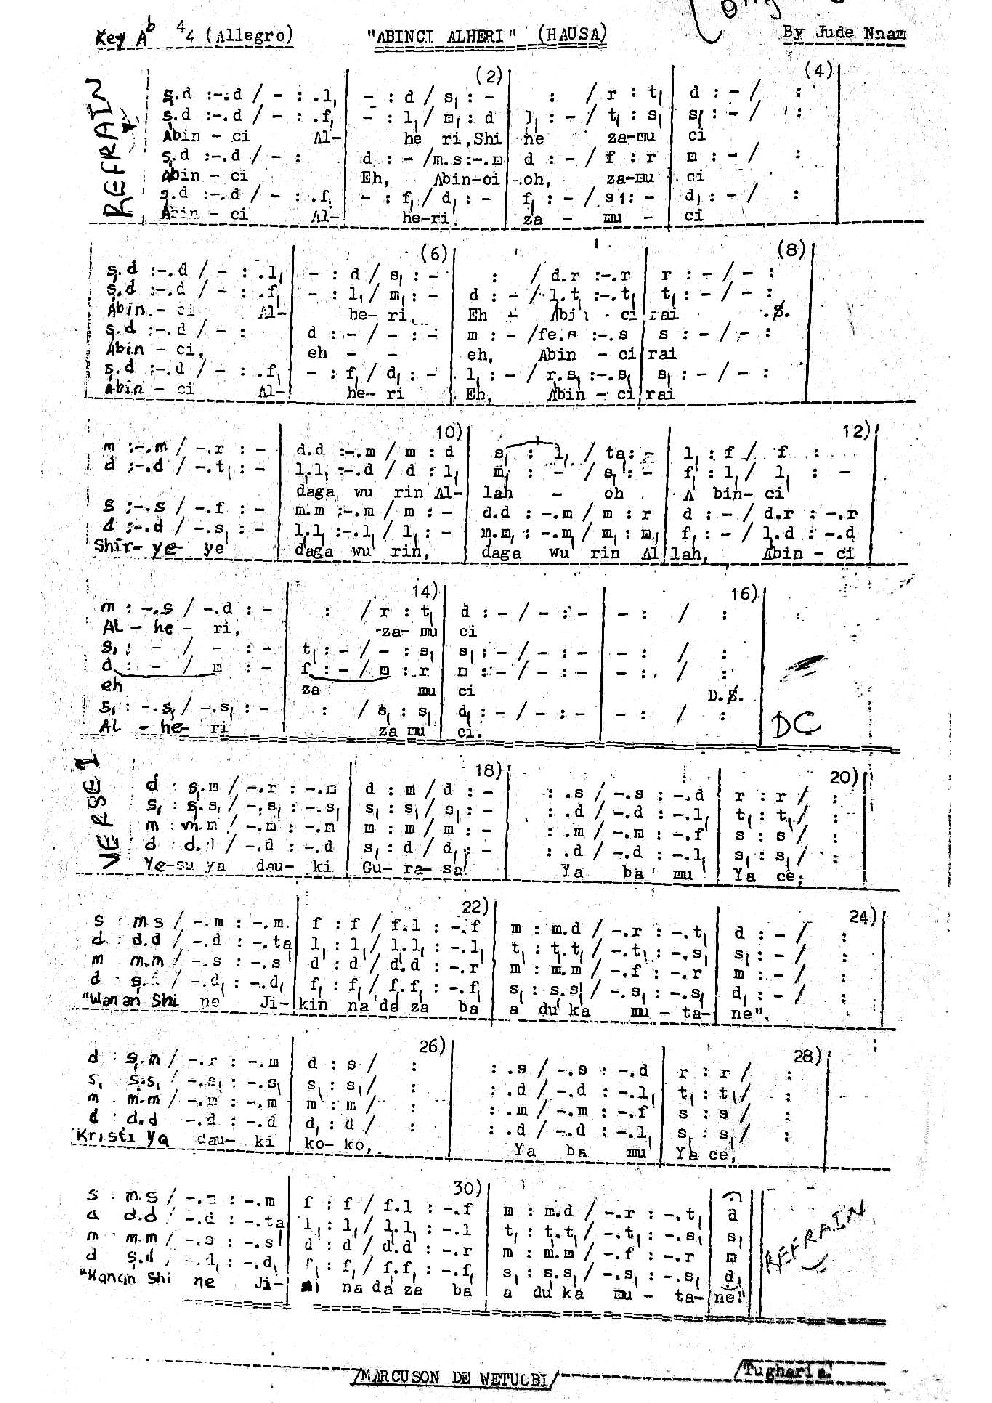 Key Ab 4/4 (Allegro) "ABINCI ALHERI" (HAUSA) By Jude Nnam
REFRAIN
(2) (4)
s₁.d :-.d / - : .l₁ | - : d / s₁ : - | : / r : t₁ | d : - / :
s₁.d :-.d / - : .f₁ | - : l₁/ m₁ : d | l₁ : - / t₁ : s₁ | s₁ : - / :
Abin - ci Al- he ri,Shi he za-mu ci
s.d :-.d / - : | d : - /m.s:-.m | d : - / f : r | m : - / :
Abin - ci Eh, Abin-ci oh, za-mu ci
s.d :-.d / - : .f₁ | - : f₁/ d₁ : - | f₁ : - / s1: - | d₁ : - / :
Abin - ci Al- he-ri. za - mu - ci
(6) (8)
s₁.d :-.d / - : .l₁ | - : d / s₁ : - | : / d.r :-.r | r : - / - :
s₁.d :-.d / - : .f₁ | - : l₁/ m₁ : - | d : - / l₁.t₁ :-.t₁ | t₁ : - / - :
Abin - ci Al- he- ri, Eh - Abin - ci rai .S.
s₁.d :-.d / - : | d : - / - : - | m : - /fe.s :-.s | s : - / - :
Abin - ci, eh - - eh, Abin - ci rai
s₁.d :-.d / - : .f₁ | - : f₁/ d₁ : - | l₁ : - / r.s₁ :-.s₁ | s₁ : - / - :
Abin - ci Al- he- ri Eh, Abin - ci rai
10) 12)
m :-.m / -.r : - | d.d :-.m / m : d | s₁ : l₁ / ta: - | l₁ : f / f :
d :-.d / -.t₁ : - | l₁.l₁ :-.d / d : l₁ | m₁ : - / s₁ : - | f₁ : l₁/ l₁ : -
daga wu rin Al- lah - oh A bin- ci
s :-.s / -.f : - | m.m :-.m / m : - | d.d :-.m / m : r | d : - / d.r :-.r
d :-.d / -.s₁ : - | l₁.l₁ :-.l₁/ l₁ : - | m₁.m₁ :-.m₁/ m₁ : m₁ | f₁ : - / l₁.d :-.d
Shir- ye- ye daga wu rin, daga wu rin Al lah, Abin - ci
14) 16)
m : -.s / -.d : - | : / r : t₁ | d : - / - : - | - : / :
AL - he - ri, -za- mu ci
s₁ : - / - : - | t₁ : - / - : s₁ | s₁ : - / - : - | - : / :
d : - / m : - | f : - / m : r | m : - / - : - | - : / :
eh za mu ci D.S.
s₁ : -.s₁/ -.s₁ : - | : / s₁ : s₁ | d₁ : - / - : - | - : / : DC
AL - he- ri za mu ci.
VERSE 1
18) 20)
d : s₁.m / -.r : -.m | d : m / d : - | : .s / -.s : -.d | r : r / :
s₁ : s₁.s₁ / -.s₁ : -.s₁ | s₁ : s₁/ s₁ : - | : .d / -.d : -.l₁ | t₁ : t₁/ :
m : m.m / -.m : -.m | m : m / m : - | : .m / -.m : -.f | s : s / :
d : d.d / -.d : -.d | s₁ : d / d₁ : - | : .d / -.d : -.l₁ | s₁ : s₁/ :
Ye-su ya dau- ki Gu- ra- sa Ya ba mu Ya ce;
22) 24)
s : m.s / -.m : -.m | f : f / f.l : -.f | m : m.d / -.r : -.t₁ | d : - / :
d : d.d / -.d : -.ta | l₁ : l₁/ l₁.l₁ : -.l₁ | t₁ : t₁.t₁/ -.t₁ : -.s₁ | s₁ : - / :
m m.m / -.s : -.s | d : d / d.d : -.r | m : m.m / -.f : -.r | m : - / :
d s₁.d / -.d₁ : -.d₁ | f₁ : f₁/ f₁.f₁ : -.f₁ | s₁ : s₁.s₁/ -.s₁ : -.s₁ | d₁ : - / :
"Wanan Shi ne Ji- kin na da za ba a du ka mu - ta- ne".
26) 28)
d : s₁.m / -.r : -.m | d : s / : | : .s / -.s : -.d | r : r / :
s₁ s₁.s₁ / -.s₁ : -.s₁ | s₁ : s₁/ : | : .d / -.d : -.l₁ | t₁ : t₁/ :
m m.m / -.m : -.m | m : m / : | : .m / -.m : -.f | s : s / :
d d.d -.d : -.d | d₁ : d / : | : .d / -.d : -.l₁ | s₁ : s₁ / :
Kristi Ya dau- ki ko-ko, Ya ba mu Ya ce,
30)
s : m.s / -.m : -.m | f : f / f.l : -.f | m : m.d / -.r : -.t₁ | d
d d.d / -.d : -.ta | l₁ : l₁/ l₁.l₁ : -.l | t₁ : t₁.t₁/ -.t₁ : -.s₁ | s₁
m m.m / -.s : -.s | d : d / d.d : -.r | m : m.m / -.f : -.r | m
d s₁.d / -.d₁ : -.d₁ | f₁ : f₁/ f₁.f₁ : -.f₁ | s₁ : s₁.s₁/ -.s₁ : -.s₁ | d₁
"Wanan Shi ne Ji- na da za ba a du ka mu - ta- ne"
REFRAIN
/MARCUSON DE WETUOBI/ /Tugheria